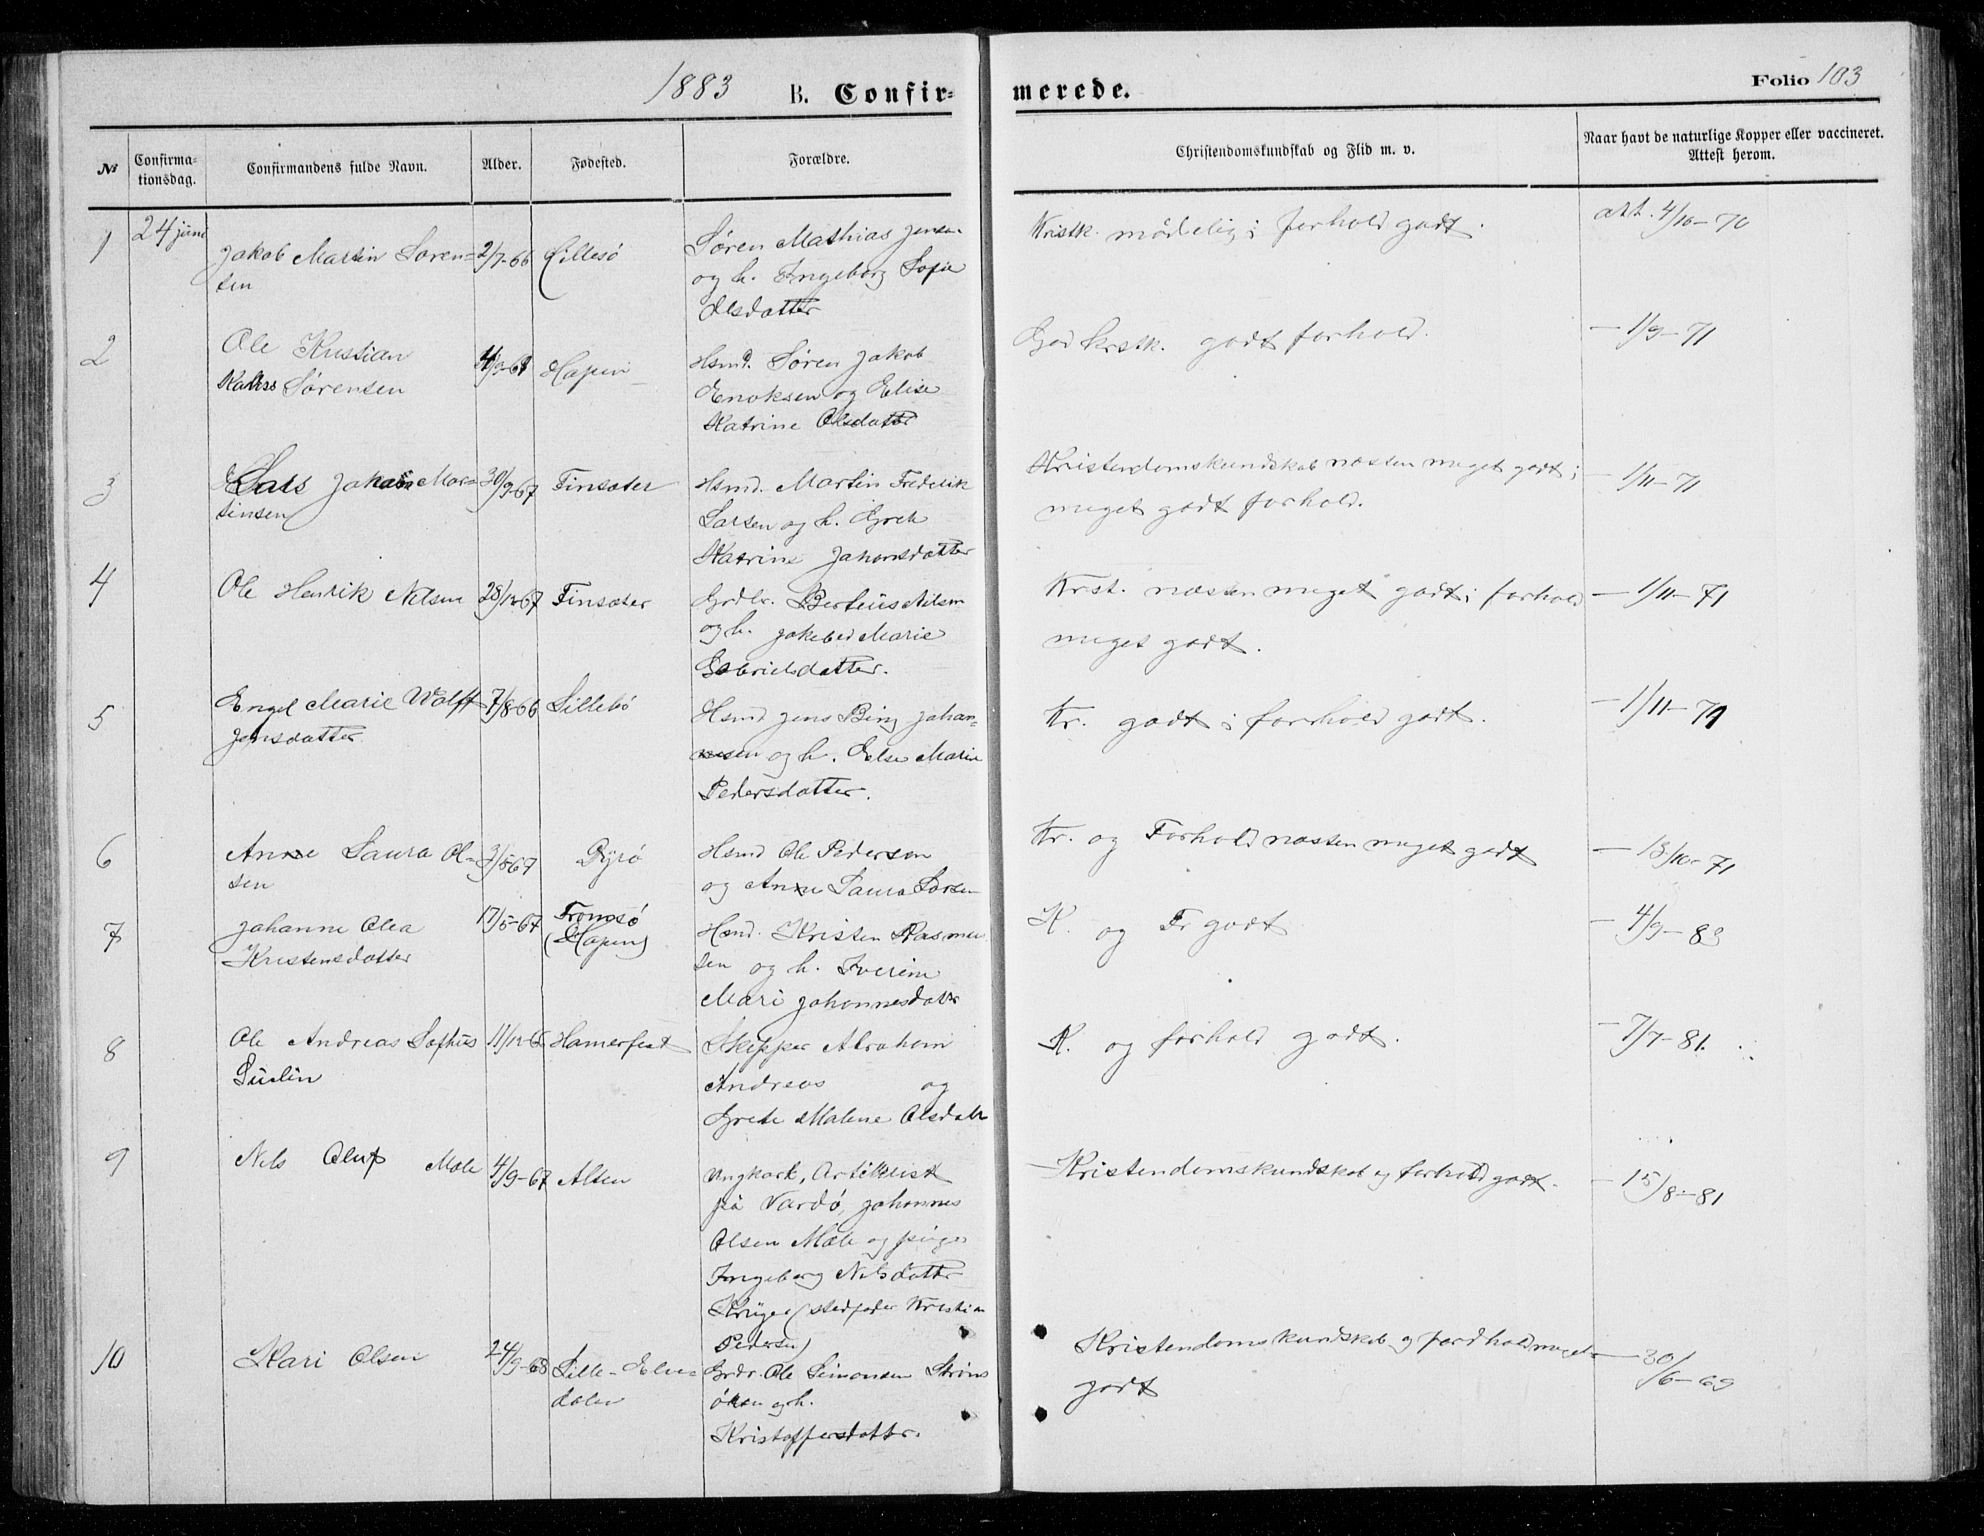 1883 B. Confir= merede. Folio 103
№
Confirma-
tionsdag.
Confirmandens fulde Navn.
Alder.
Fødested.
Forældre.
Christendomskundskab og Flid m. v.
Naar havt de naturlige Kopper eller vaccineret.
Attest herom.
1 24 juni
Jakob Martin Soren=
sen
2/7-66
Lillesø
Søren Mathias Jensen
og h. Ingeborg Sofie
Olsdatter
Kristk. mådelig; forhold godt.
att. 4/10-70
2
Ole Kristian
Sørensen
Hapen
Hsmd. Søren Jakob
Enoksen og Elise
Katrine Olsdatter
God krstk. godt forhold.
- 1/9-71
3
Lars Johan Mar=
tinsen
30/9-67
Finsæter
Hsmd. Martin Frederik
Larsen og h. Grete
Katrine Johansdatter
Kristendomskundskab næsten meget godt;
meget godt forhold.
- 1/11-71
4
Ole Henrik Nelsen
28/12-67
Finsæter
Grdbr. Berteüs Nilsen
og h. Jakobed Marie
Gabrielsdatter.
Krst. næsten meget godt; forhold
meget godt.
- 1/11-71
5
Engel Marie Wolff
Jensdatter
7/8-66
Lillebö
Hsmd Jens Bing Johan-
nesen og h. Else Marie
Pedersdatter.
Kr. godt; forhold godt.
- 1/11-71
6
Anne Laura Ol=
sen
3/5-67
Dyrö
Hsmd Ole Pedersen
og Anne Laura Larsen
Kr. og Forhold næsten meget godt
- 13/10-71
7
Johanne Olea
Kristensdatter
17/5-67
Tromsö
(Hapen)
Hsmd. Kristen Rasmus
sen og h. Iverine
Mari Johannesdatr
K. og Fr godt
- 4/9-83
8
Ole Andreas Sofhus
11/12-6
Hamerfest
Skipper Abraham
Andreas og
Grete Malene Olsdatr
K. og forhold godt.
- 7/7-81.
9
Nils Oluf Mæle
4/9-67
Alten
Ungkarl, Artillerist
på Vardö, Johannes
Olsen Mæle og pige
Ingeborg Nilsdatter
Krüger (stedfader Kristian
Pedersen)
- Kristendomskundskab og forhold godt.
- 15/8-81
10
Kari Olsen
24/9-68
Lille-Elve=
dalen
Grdr. Ole Simonsen Ströms
öien og h.
Kristoffersdatter.
Kristendomskundskab og forhold meget
godt
- 30/6-69